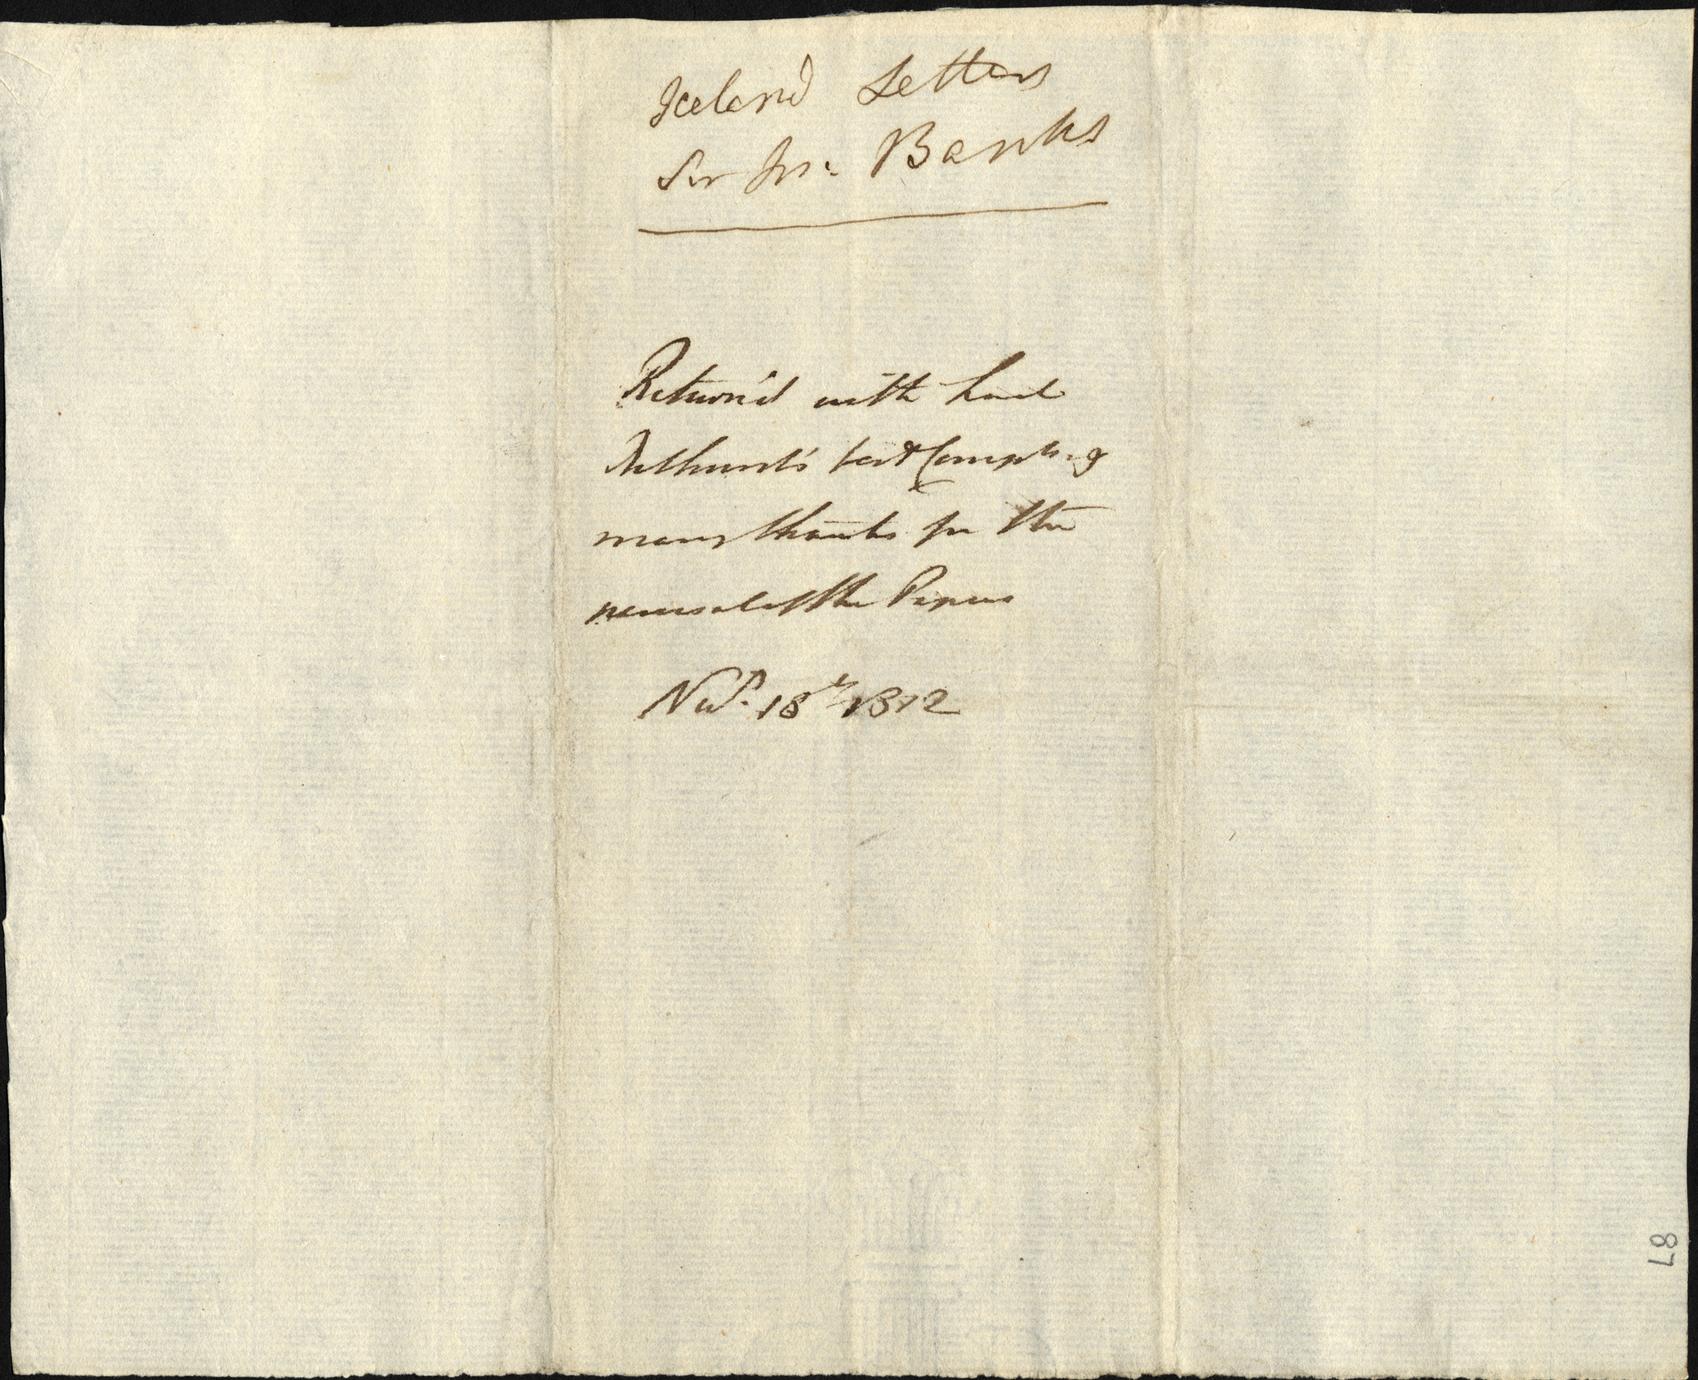 Iceland Letters
Sir Jos: Banks
Return'd with Lord
Bathurst's best Compts. &
many thanks for the
perusal of the Papers
Novr. 18th 1812
87